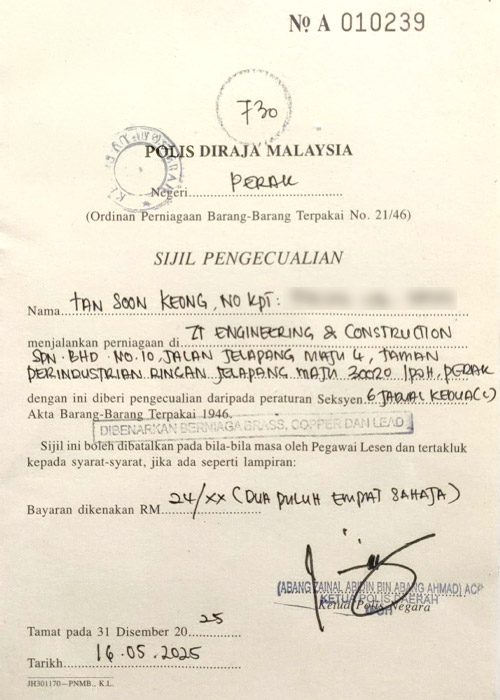 No A 010239
730
POLIS DIRAJA MALAYSIA
Negeri PERAK
(Ordinan Perniagaan Barang-Barang Terpakai No. 21/46)
SIJIL PENGECUALIAN
Nama TAN SOON KEONG, NO KPT:
menjalankan perniagaan di ZT ENGINEERING & CONSTRUCTION
SDN. BHD. NO. 10, JALAN JELAPANG MAJU 4, TAMAN
PERINDUSTRIAN RINGAN JELAPANG MAJU 30020 IPOH, PERAK
dengan ini diberi pengecualian daripada peraturan Seksyen 6 JADUAL KEDUA(C)
Akta Barang-Barang Terpakai 1946.
DIBENARKAN BERNIAGA BRASS, COPPER DAN LEAD
Sijil ini boleh dibatalkan pada bila-bila masa oleh Pegawai Lesen dan tertakluk
kepada syarat-syarat, jika ada seperti lampiran:
Bayaran dikenakan RM 24/XX (DUA PULUH EMPAT SAHAJA)
(ABANG ZAINAL ABIDIN BIN ABANG AHMAD) ACP
KETUA POLIS DAERAH
IPOH
Ketua Polis Negara
Tamat pada 31 Disember 20 25
Tarikh 16.05.2025
JH301170—PNMB., K.L.